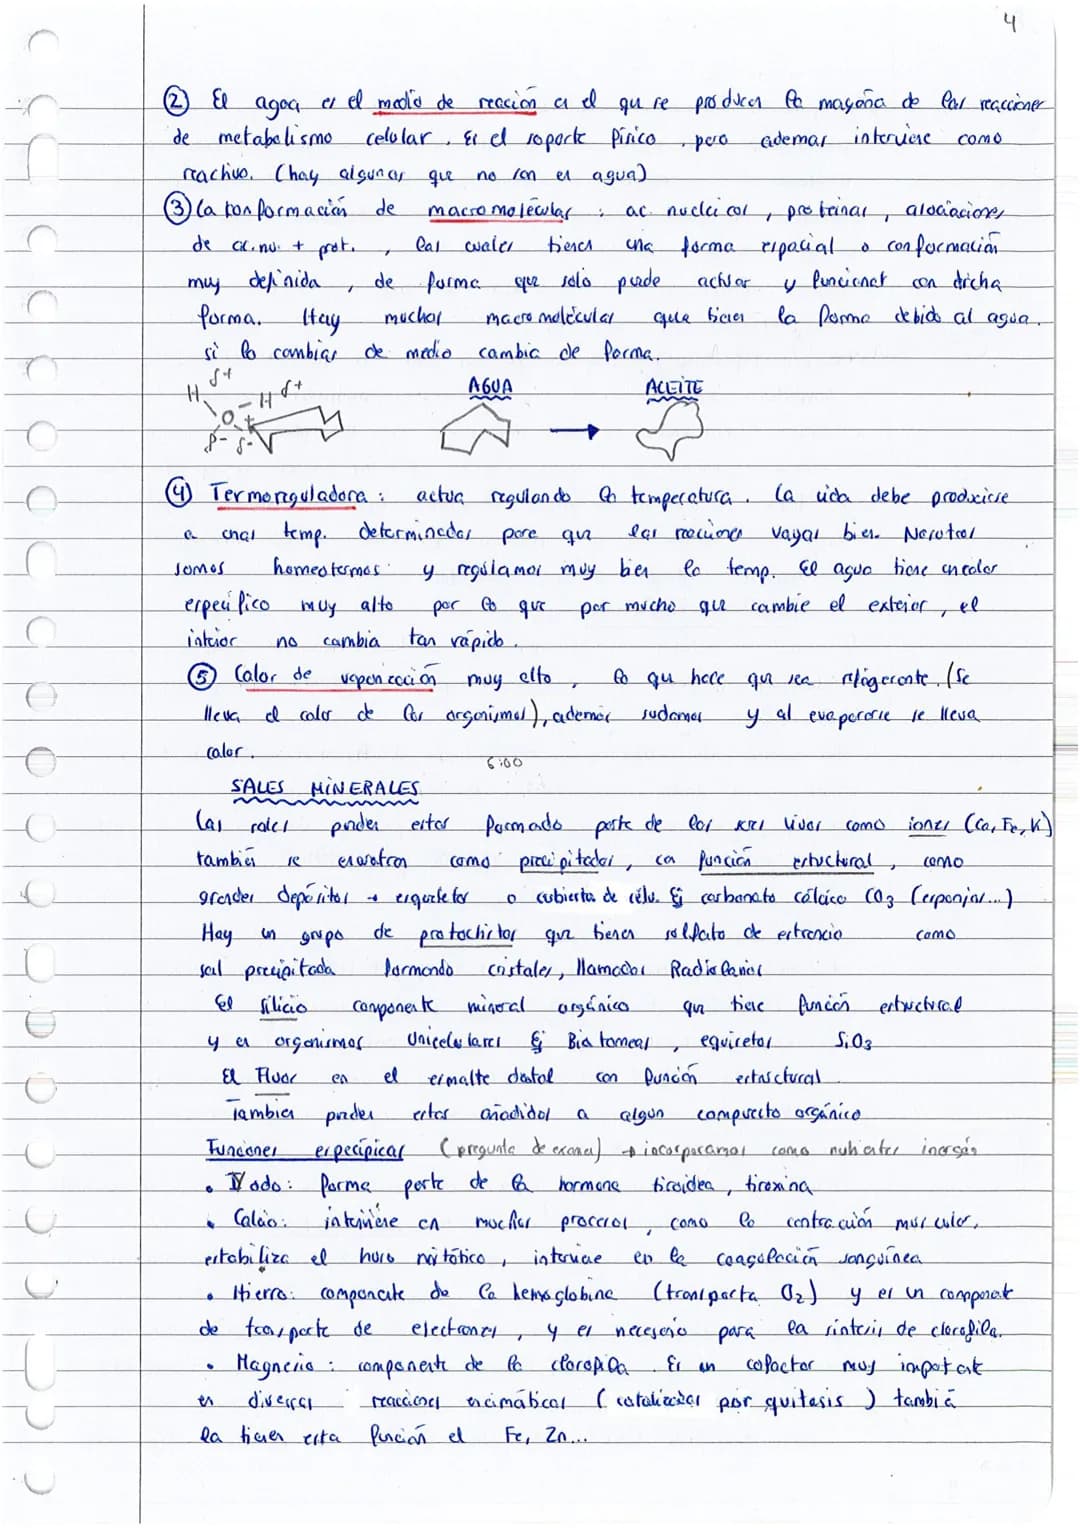 4
② El agoa es el medio de reación en el que se producen la mayoria de las reacciones
de metabolismo celular. Es el soporte físico, pero ademas interviene como
reactivo. (hay algunas que no son en agua)
③ La conformación de macromoléculas: ac. nucleicos, proteinas, asociaciones
de ac.nu. + prot., las cuales tienen una forma espacial o conformación
muy definida, de forma que solo puede actuar y funcionar con dicha
forma. Hay muchas macromoléculas que tienen la forma debido al agua.
si lo cambias de medio cambia de forma.
H δ+ O - H δ+
δ- δ-
AGUA ACEITE
④ Termorreguladora: actua regulando la temperatura. La vida debe producirse
a unas temp. determinadas para que las reacciones vayan bien. Nosotros
somos homeotermos y regulamos muy bien la temp. El agua tiene un calor
especifico muy alto por lo que por mucho que cambie el exterior, el
interior no cambia tan rápido.
⑤ Calor de vaporización muy alto, lo que hace que sea refrigerante. (Se
lleva el calor de los organismos), además sudamos y al evaporarse se lleva
calor.
6:00
SALES MINERALES
Las sales pueden estar formando parte de los seres vivos como iones (Ca, Fe, K)
tambien se encuentran como precipitados, con función estructural, como
grandes depósitos → esqueletos o cubierta de célu. Ej carbonato cálcico CO3 (esponjas...)
Hay un grupo de protoctistos que tienen sulfato de estroncio como
sal precipitada formando cristales, llamados Radiolarios
El Silicio componente mineral orgánico que tiene función estructural
y en organismos Unicelulares Ej Diatomeas, equisetos SiO3
El Fluor en el esmalte dental con función estructural
Tambien pueden estar añadidos a algun compuesto orgánico
Funciones especificas (pregunta de examen) → incorporamos como nutrientes inorgán
• Yodo: forma parte de la hormona tiroidea, tiroxina
• Calcio: interviene en muchos procesos, como la contracción muscular,
estabiliza el huso mitótico, interviene en la coagulación sanguínea
• Hierro: componente de la hemoglobina (transporta O2) y es un componente
de transporte de electrones, y es necesario para la sintesis de clorofila.
• Magnesio: componente de la clorofila. Es un cofactor muy importante
en diversas reacciones enzimáticas ( catalizadas por ) tambié
la tienen esta función el Fe, Zn...